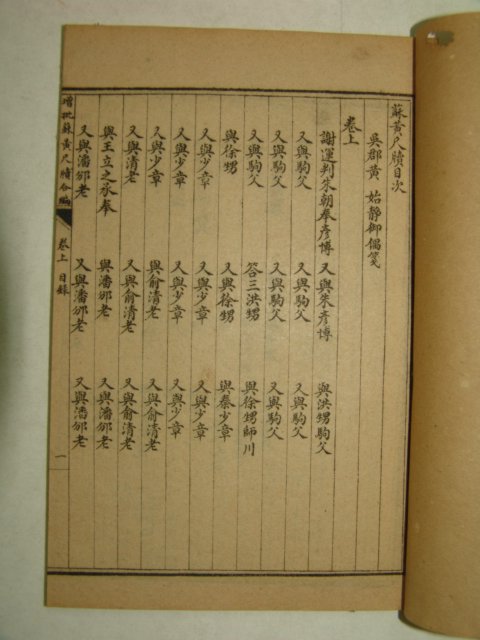 蘇黃尺牘目次
吳郡黃 始靜御偶箋
卷上
謝運判朱朝奉彥博 又與朱彥博 與洪甥駒父
又與駒父 又與駒父 又與駒父
又與駒父 又與駒父 又與駒父
又與駒父 答三洪甥 與徐甥師川
與徐甥 又與徐甥 與秦少章
又與少章 又與少章 又與少章
又與少章 又與少章 又與少章
又與少章 與俞清老 又與俞清老
又與清老 又與俞清老 又與俞清老
與王立之承奉 與潘邠老 又與潘邠老
又與潘邠老 又與潘邠老 又與潘邠老
增批蘇黃尺牘合編 卷上 目錄 一